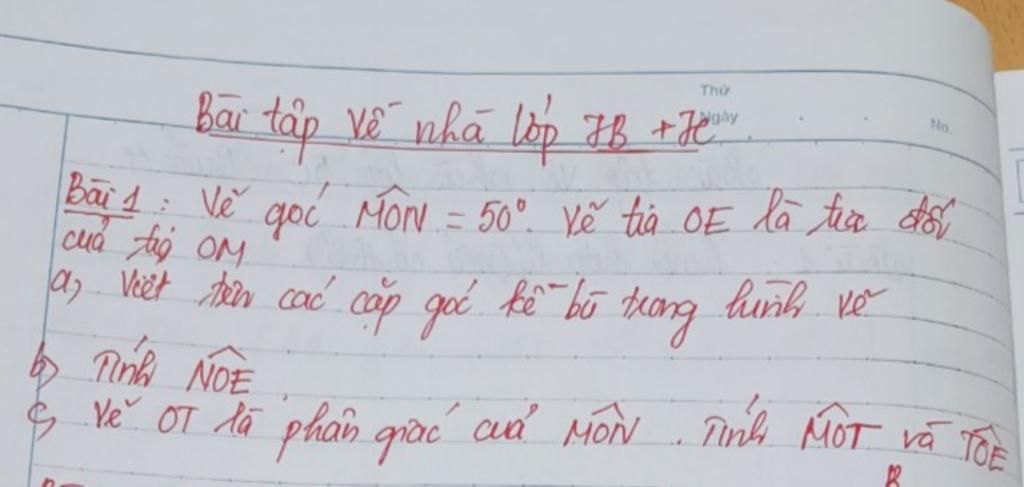 Thứ
Ngày
No.
Bài tập về nhà lớp 7B + 7C
Bài 1: Vẽ góc MÔN = 50°. Vẽ tia OE là tia đối
của tia OM
a, Viết tên các cặp góc kề bù trong hình vẽ
b) Tính NÔE
c, Vẽ OT là phân giác của MÔN. Tính MÔT và TÔE